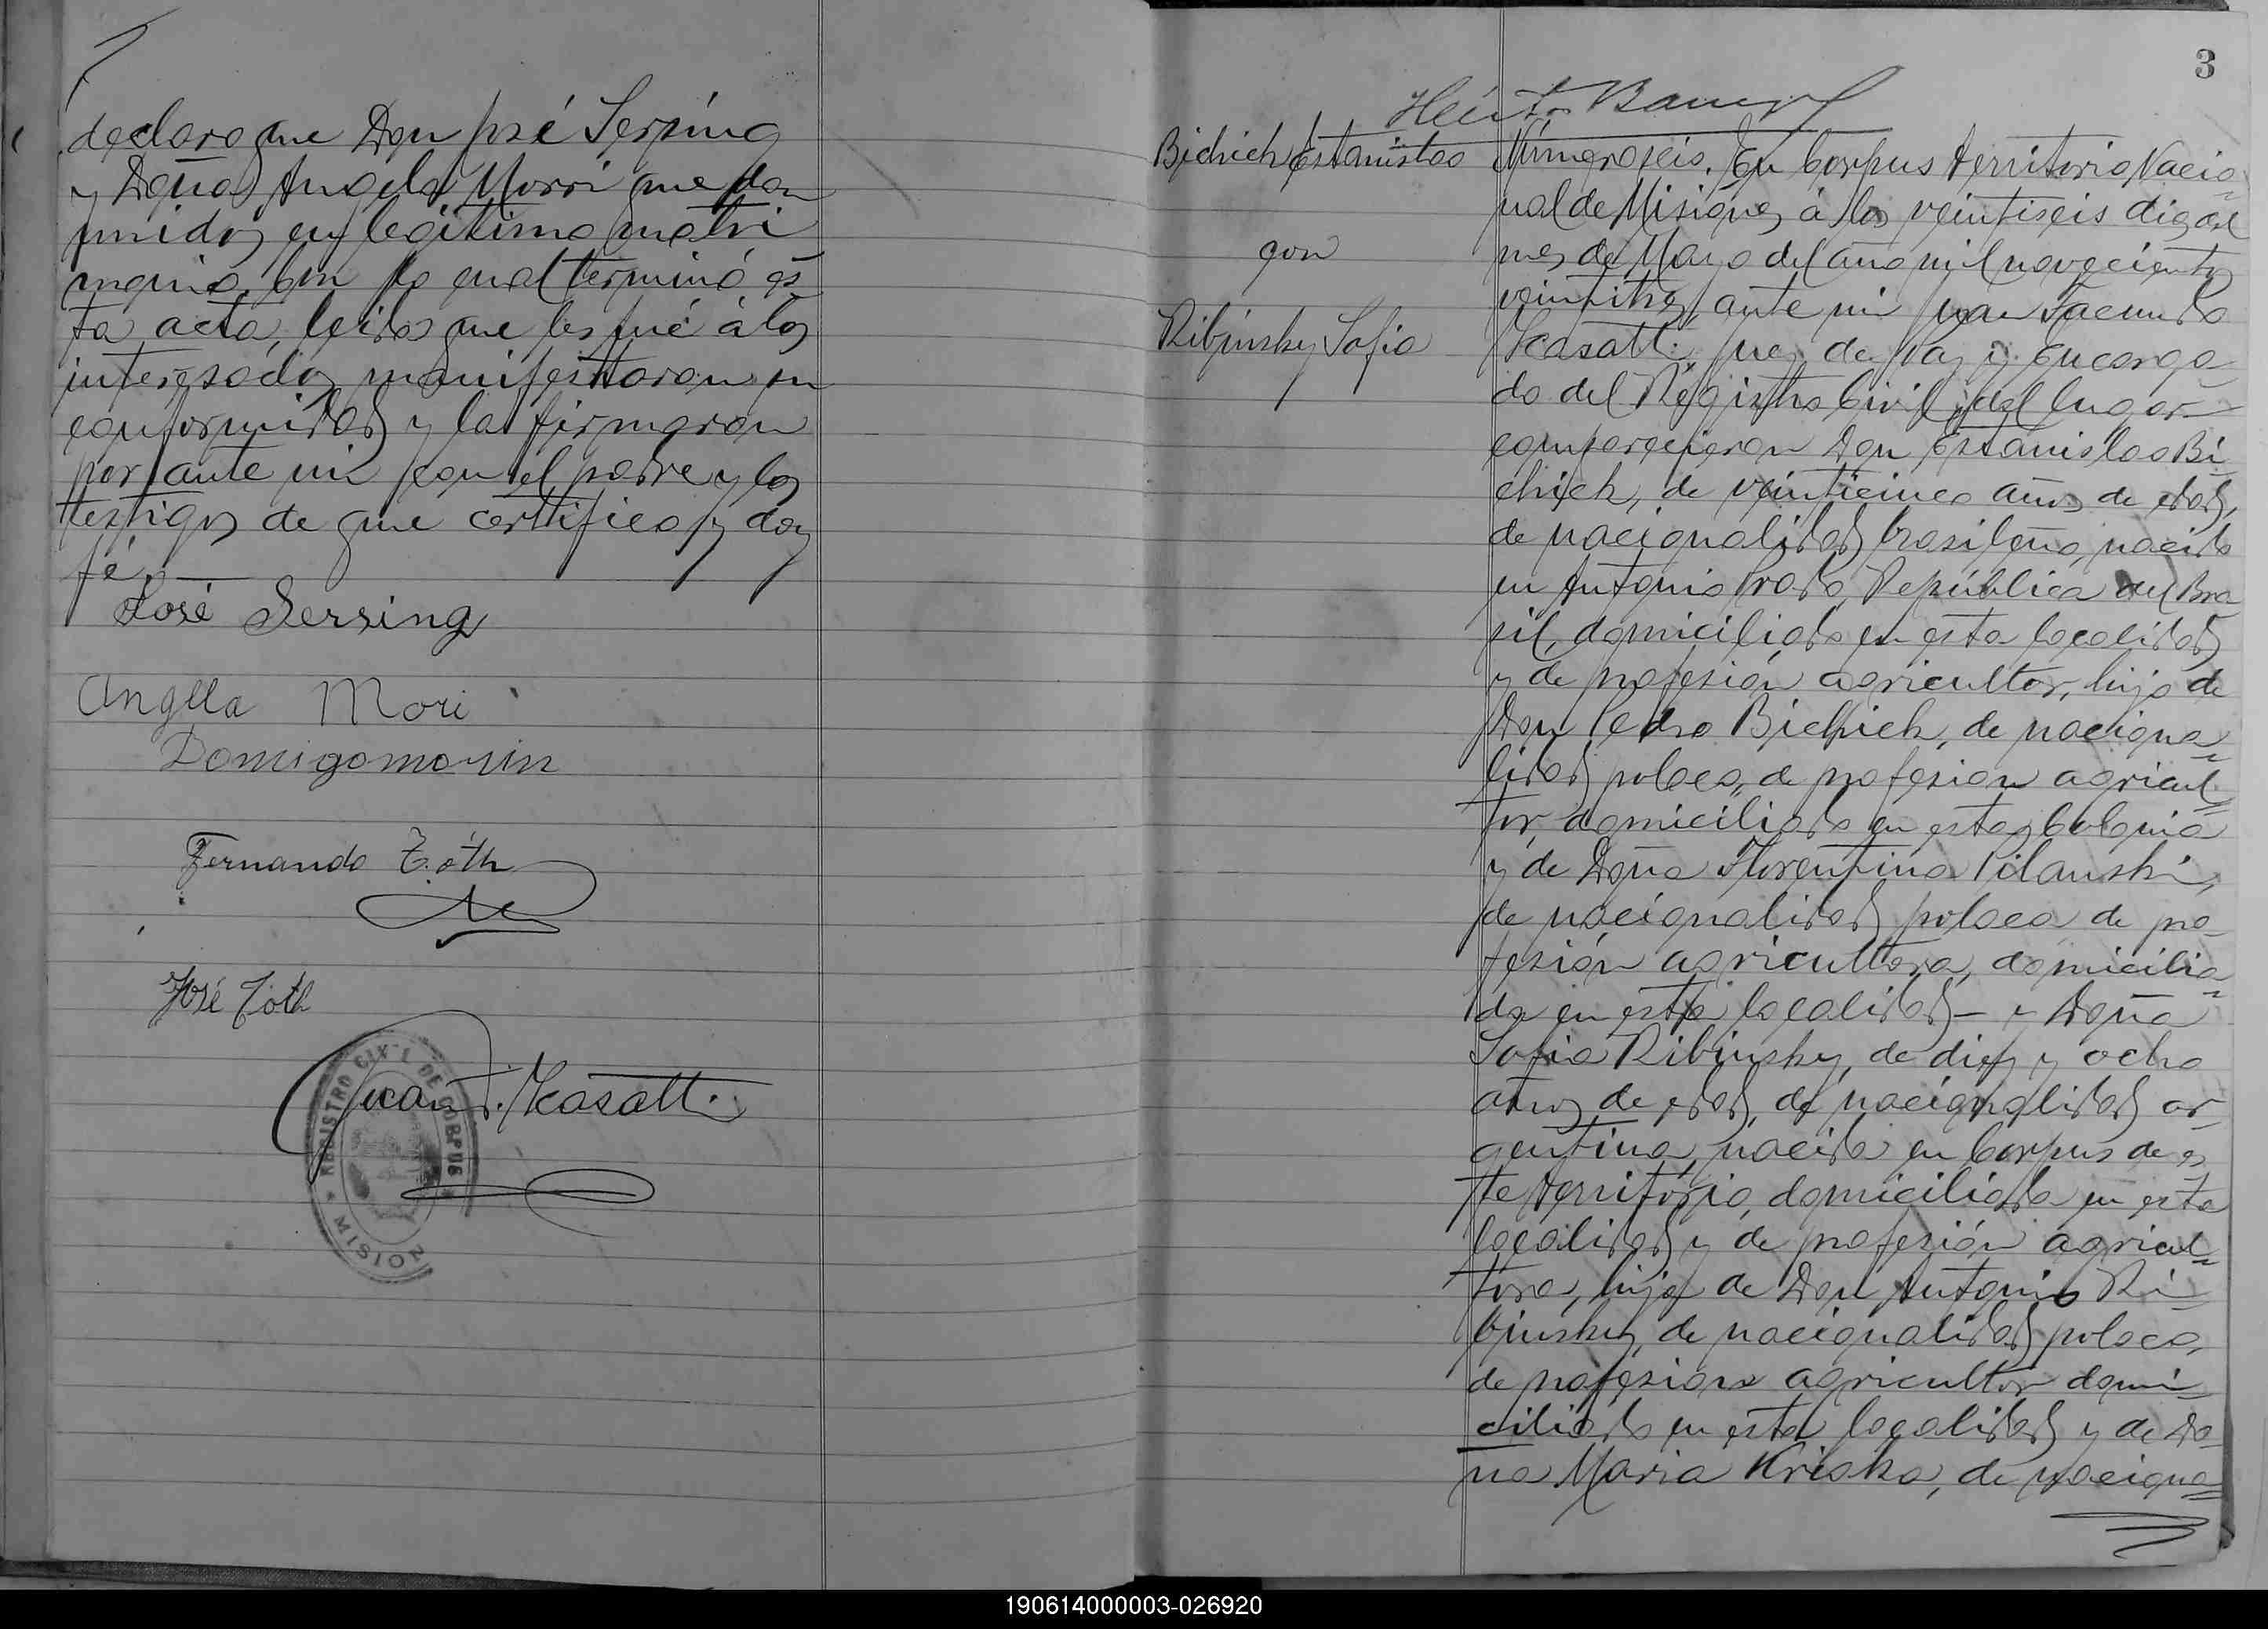 declaro que Don José Sersing
y Doña Angela Morri quedan
unidos en legítimo matri
monio. Con lo cual terminó és
ta acta, leida que les fué á los
interesados manifestaron su
conformidad y la firmaron
por ante mi con el padre y los
testigos de que certifico y doy
fé.—
José Sersing
Angella Mori
Domigomorin
Fernando Tóth
José Tóth
Juan F.
REGISTRO CIVIL DE CORPUS
MISIONES
3
Héctor
Bichich Estanislao
con
Ribinsky Sofia
Número seis. En Corpus territorio Nacio-
nal de Misiones á los veintiseis dias del
mes de Mayo del año mil novecientos
veintitres, ante mi Juan Facundo
Juez de Paz y Encarga-
do del Registro Civil del lugar
comparecieron Don Estanislao Bi
chich, de veinticinco años de edad,
de nacionalidad brasileña, nacido
en Antonio Prado, República del Bra
sil, domiciliado en esta localidad
y de profesión agricultor, hijo de
Don Pedro Bichich, de naciona-
lidad polaca, de profesion agricul-
tor, domiciliado en esta Colonia
y de Doña Florentina Pilanski,
de nacionalidad polaca de pro-
fesión agricultora, domicilia-
da en esta localidad— y Doña
Sofia Ribinsky, de diez y ocho
años de edad, de nacionalidad ar-
gentina, nacida en Corpus de es
te territorio, domiciliada en esta
localidad y de profesión agricul-
tora, hija de Don Antonio Ri-
binsky, de nacionalidad polaca,
de profesion agricultor domi-
ciliado en esta localidad y de Do-
ña Maria Kriska, de naciona-
190614000003-026920